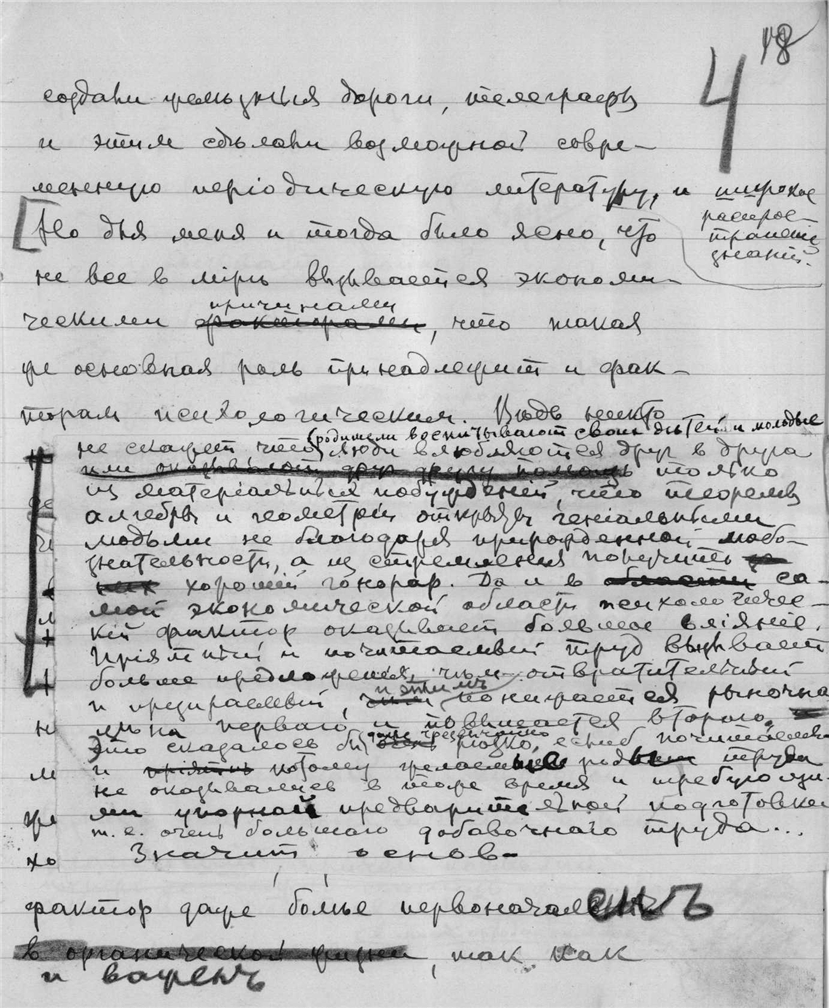 18
4
создали желѣзныя дороги, телеграфы
и этим сдѣлали возможной совре-
менную періодическую литературу, и широкое
распрос-
транение
знаній.
[Но для меня и тогда было ясно, что
не все в мірѣ вызывается экономи-
причинами
ческими факторами, что такая
же основная роль принадлежит и фак-
торам психологическим. Вѣдь никто
(родители воспитывают своих дѣтей и молодые
не скажет, что люди влюбляются друг в друга
или оказывают друг другу помощь только
из матеріальных побужденій, что теоремы
алгебры и геометріи открыты геніальными
людьми не благодаря прирожденной любо-
знательности, а из стремления получить за
них хорошій гонорар. Да и в области са-
мой экономической области психологичес-
кій фактор оказывает большое вліяніе.
Пріятный и почитаемый труд вызывает
больше предложенія, чѣм отвратительный
и этимъ
и презираемый, понижается рыночна
цѣна перваго и повышается второго.
даже чрезвычайно
Это сказалось бы очень рѣзко, если б почитаемый
и потому желаемый труд
не оказывался в тоже время и требующи-
ми упорной предварительной подготовки
т. е. очень большого добавочнаго труда...
Значит основ-
фактор даже болѣе первоначаленъ
в органической жизни, так как
и важенъ